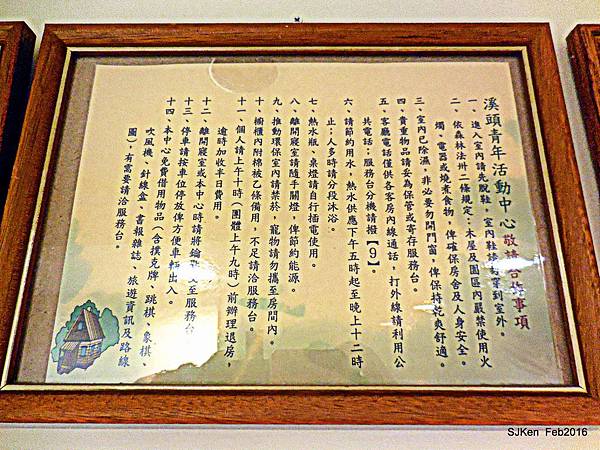 溪頭青年活動中心敬請合作事項
一、進入室內請先脫鞋，室內鞋請勿穿到室外。
二、依森林法卅二條規定：木屋及園區內嚴禁使用火
燭、電器或燒煮食物，俾確保房舍及人身安全。
三、室內已除濕，非必要勿開門窗，俾保持乾爽舒適。
四、貴重物品請妥為保管或寄存服務台。
五、客廳電話僅供各客房內線通話，打外線請利用公
共電話；服務台分機請撥【9】。
六、請節約用水，熱水供應下午五時起至晚上十二時
止；人多時請分段沐浴。
七、熱水瓶、桌燈請自行插電使用。
八、離開寢室請隨手關燈，俾節約能源。
九、推動環保室內請禁菸，寵物請勿攜至房間內。
十、櫥櫃內附棉被乙條備用，不足請洽服務台。
十一、個人請上午十時（團體上午九時）前辦理退房，
逾時加收半日費用。
十二、離開寢室或本中心時請將鑰匙交至服務台。
十三、停車請按車位停放俾方便車輛出入。
十四、本中心免費借用物品（含撲克牌、跳棋、象棋、
吹風機、針線盒、書報雜誌、旅遊資訊及路線
圖），有需要請洽服務台。
SJKen Feb2016